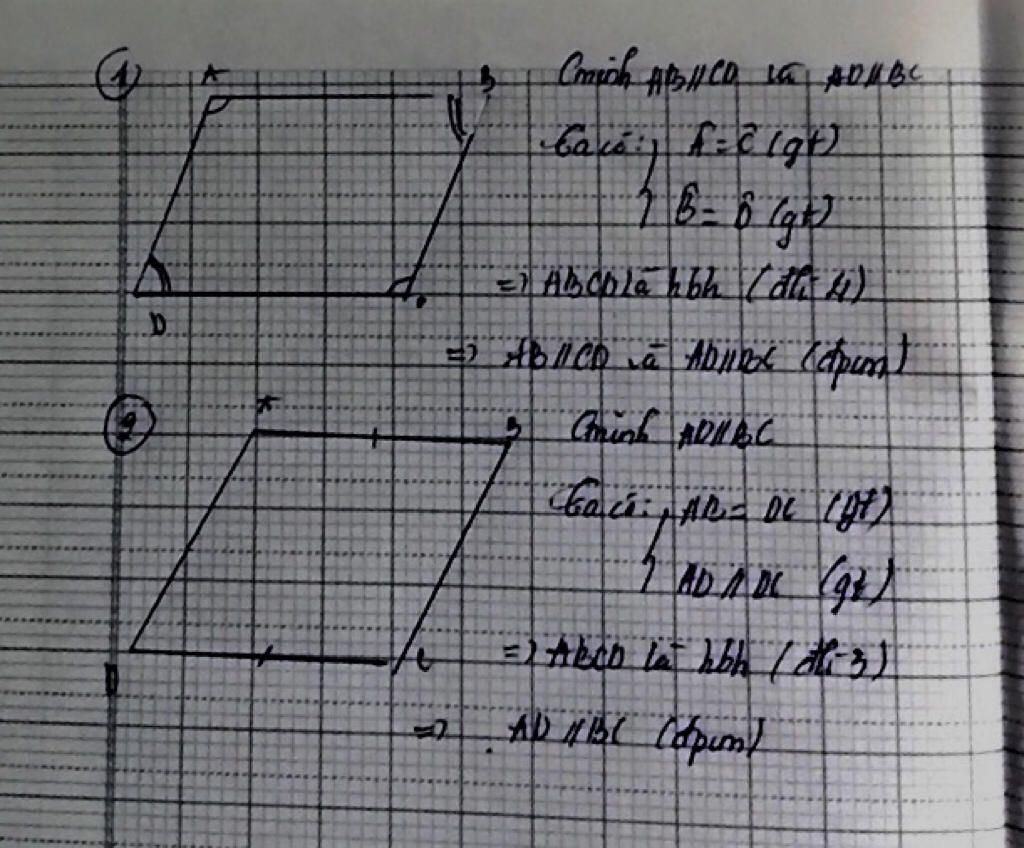 ① A B Cminh AB//CD và AD//BC
Ta có: { Â = Ĉ (gt)
B̂ = D̂ (gt)
=> ABCD là hbh (dh 4)
D
=> AB//CD và AD//BC (đpcm)
② A B Cminh AD//BC
Ta có: { AB = DC (gt)
AD // DC (gt)
=> ABCD là hbh (dh 3)
D C
=> AD // BC (đpcm)